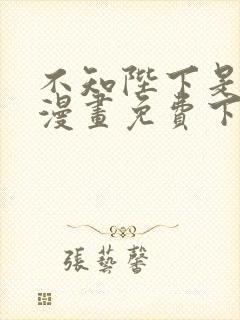 不知陛下是
漫畫免費下
張藝馨